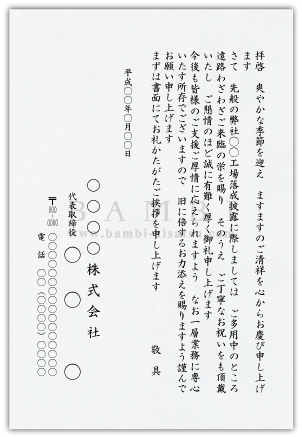 拝啓　爽やかな季節を迎え　ますますのご清祥を心からお慶び申し上げ
ます
さて　先般の弊社〇〇工場落成披露に際しましては　ご多用中のところ
遠路わざわざご来臨の栄を賜り　そのうえ　ご丁寧なお祝いをも頂戴
いたし　ご懇情のほど誠に有難く厚く御礼申し上げます
今後も皆様のご支援ご厚情に応えられますよう　なお一層業務に専心
いたす所存でございますので　旧に倍するお力添えを賜りますよう謹んで
お願い申し上げます
まずは書面にてお礼かたがたご挨拶を申し上げます
敬具
平成〇〇年〇月〇〇日
〇〇〇〇株式会社
代表取締役　〇〇　〇〇
〒000-0000　〇〇〇〇〇〇〇〇〇〇〇〇〇
電話　〇〇（〇〇〇〇）〇〇〇〇